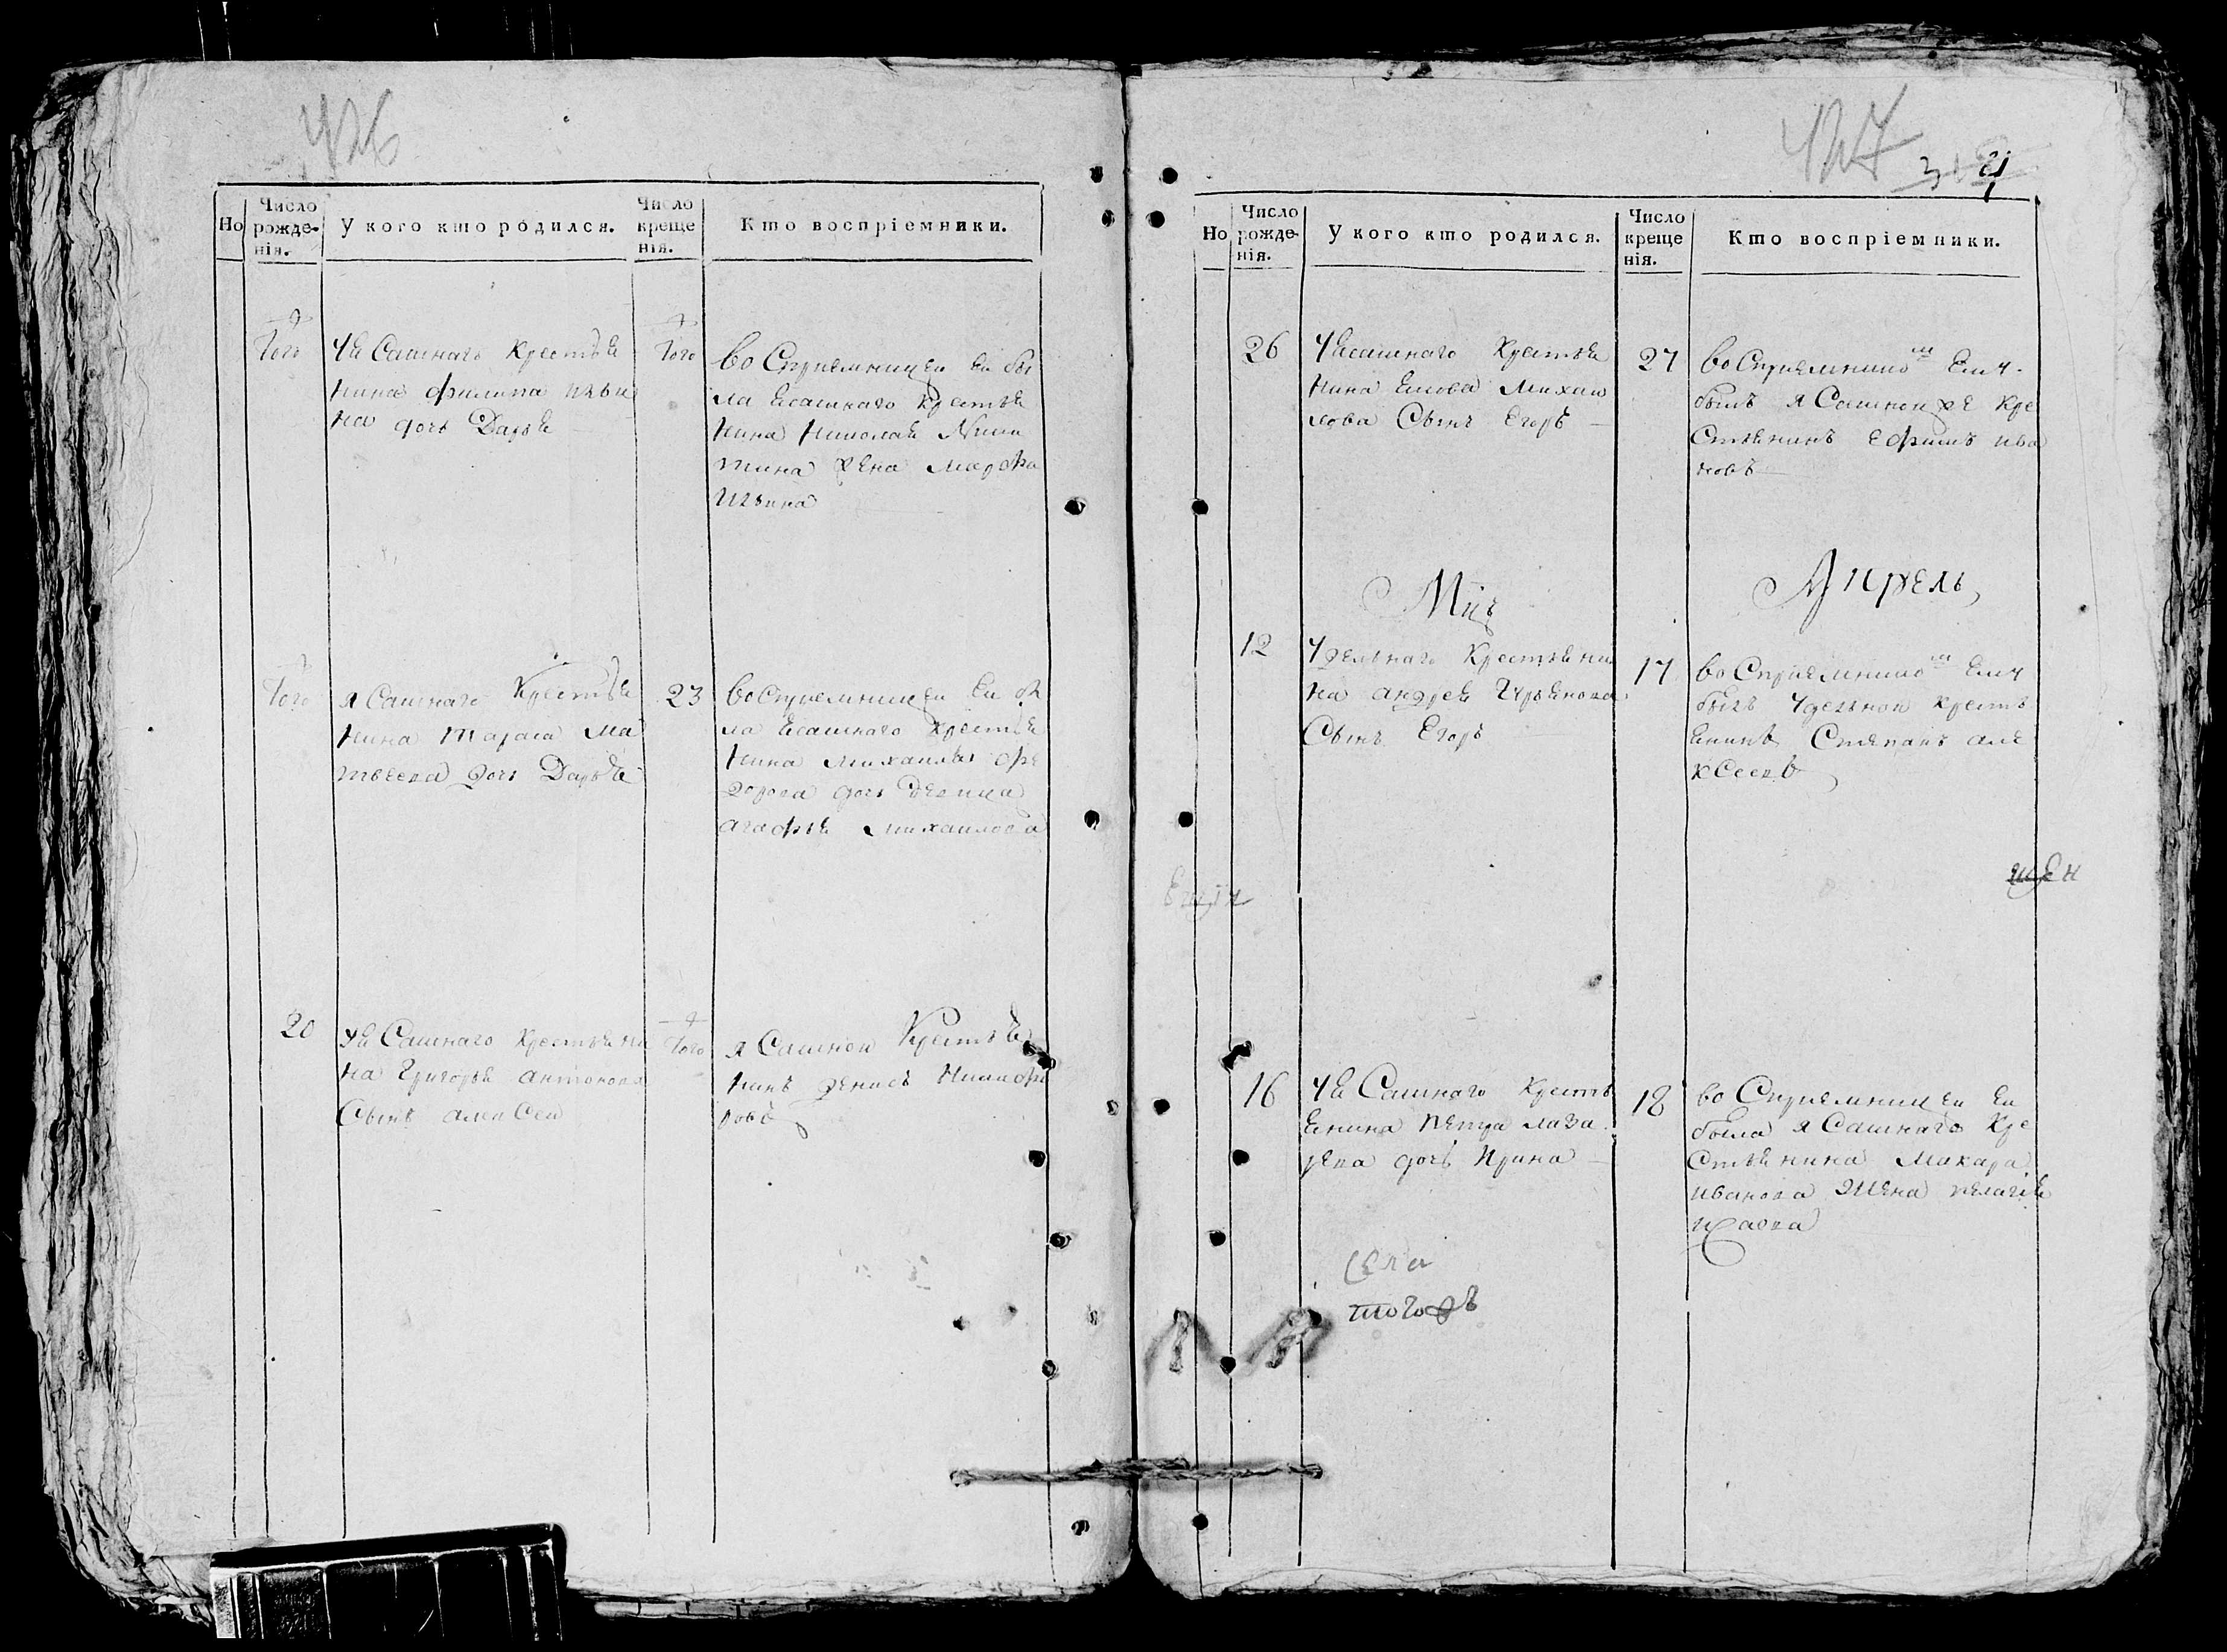 426
Но
Число рожденія.
У кого кто родился.
Число крещенія.
Кто воспріемники.
Того
Уя Сашнаго крестья
нина филипа
на дочь Дарья
Того
воСприемницеи еи бы
ла ясашнаго крестья
нина Николая Ники
тина жена марфа
Ильина
Того
я Сашнаго Крестья
нина тараса Ма
твеева дочь Дарья
23
воСприемницеи еи бы
ла ясашнаго крестья
нина михаила фе
дорова дочь девица
агафья михаилова
20
уя Сашнаго крестьяни
на Григорья антонова
Сынъ алекСеи
Того
я Сашнои Крестья
нинъ денисъ Никифо
ровъ
427
Но
Число рожденія.
У кого кто родился.
Число крещенія.
Кто воспріемники.
26
Уясашнаго Крестья
нина
Михаи
лова Сынъ Егоръ
27
воСприемнико м Ему
былъ я Сашнои же кре
Стьянинъ ефимъ ива
новъ
Мцъ
Апрель
12
Удельнаго Крестьяни
на андрея Гурьянова
Сынъ Егоръ
17
воСприемнико м Ему
былъ Удельнои крестъ
янинъ Степанъ але
кСеевъ
16
Уя Сашнаго Кресть
янина петра лаза
рева дочь Ирина
18
во Сприемницеи еи
была я Сашнаго Кре
Стьянина Макара
иванова Жена пелагия
села